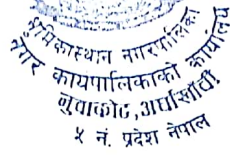 भूमिकास्थान नगरपालिका
नगर कार्यपालिकाको कार्यालय
नुवाकोट, अर्घाखाँची
५ नं. प्रदेश नेपाल